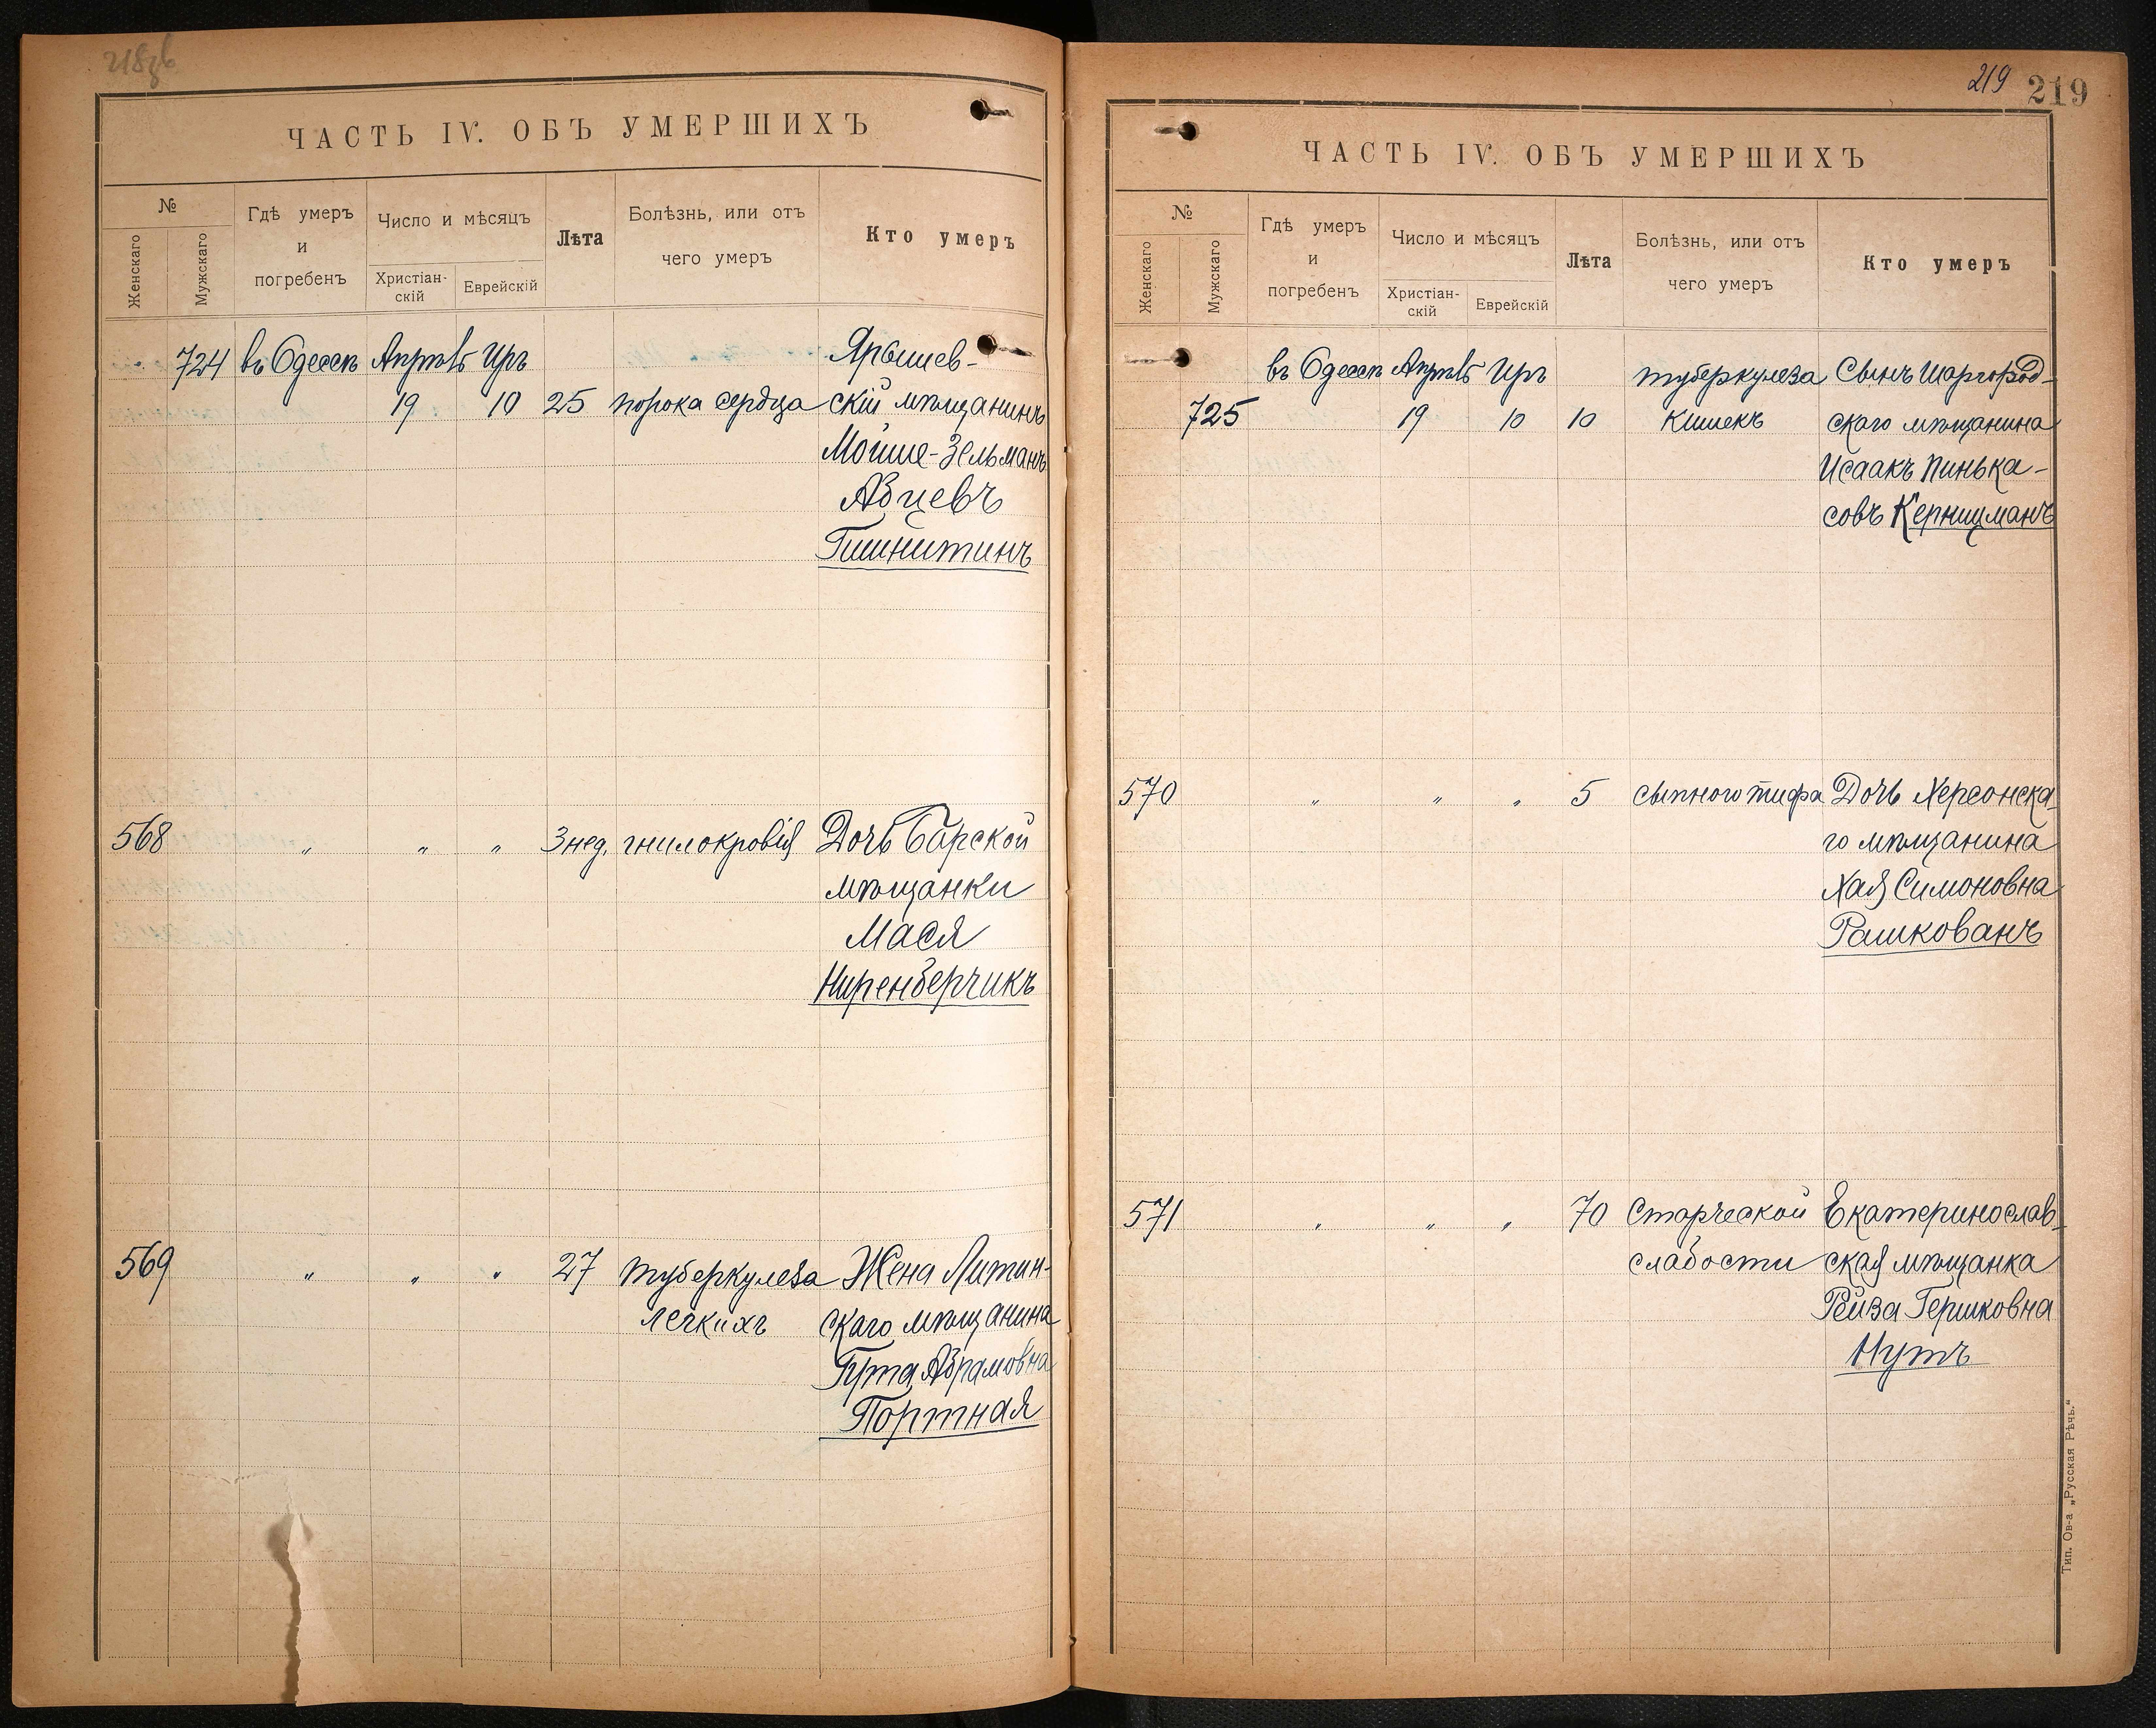 ЧАСТЬ IV. ОБЪ УМЕРШИХЪ
№
Женскаго
Мужскаго
Гдѣ умеръ
и
погребенъ
Число и мѣсяцъ
Христіан-
скій
Еврейскій
Лѣта
Болѣзнь, или отъ
чего умеръ
Кто умеръ
724 въ Одессѣ Апрѣль Иръ Ярышев-
19 10 25 порока сердца скій мѣщанинъ
Мойше-Зельманъ
Абцевъ
Гишнитинъ
568 " " " 3 нед. гнилокровія Дочь Барской
мѣщанки
Мася
Ниренберчикъ
569 " " " 27 туберкулеза Жена Литин-
легкихъ скаго мѣщанина
Гута Абрамовна
Портная
219 219
ЧАСТЬ IV. ОБЪ УМЕРШИХЪ
№
Женскаго
Мужскаго
Гдѣ умеръ
и
погребенъ
Число и мѣсяцъ
Христіан-
скій
Еврейскій
Лѣта
Болѣзнь, или отъ
чего умеръ
Кто умеръ
въ Одессѣ Апрѣль Иръ туберкулеза Сынъ Шаргород-
725 19 10 10 кишекъ скаго мѣщанина
Исаакъ Пинька-
совъ Керницманъ
570 " " " 5 сыпного тифа Дочь Херсонска-
го мѣщанина
Хая Симоновна
Рашкованъ
571 " " " 70 Старческой Екатеринослав-
слабости ская мѣщанка
Рейза Гершковна
Нутъ
Тип. Ов-а „Русская Рѣчь."